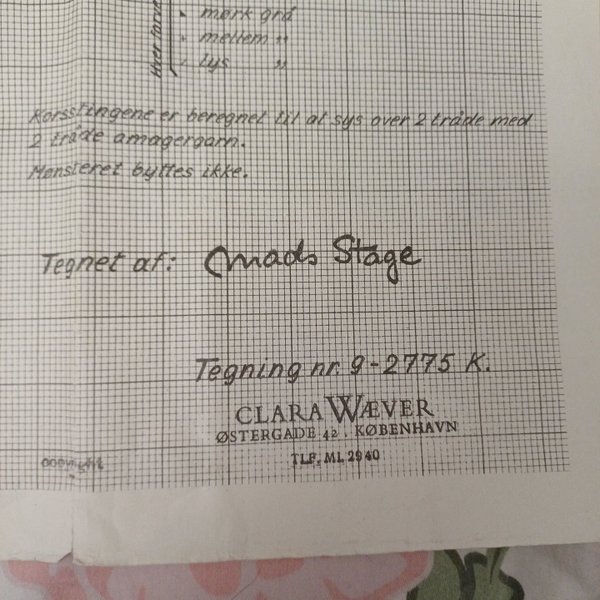 mørk grå
mellem "
lys "
Korsstingene er beregnet til at sys over 2 tråde med
2 tråde amagergarn.
Mønsteret byttes ikke.
Tegnet af: Mads Stage
Tegning nr. 9-2775 K.
CLARA WÆVER
ØSTERGADE 42 . KØBENHAVN
TLF. ML 2940
copyright